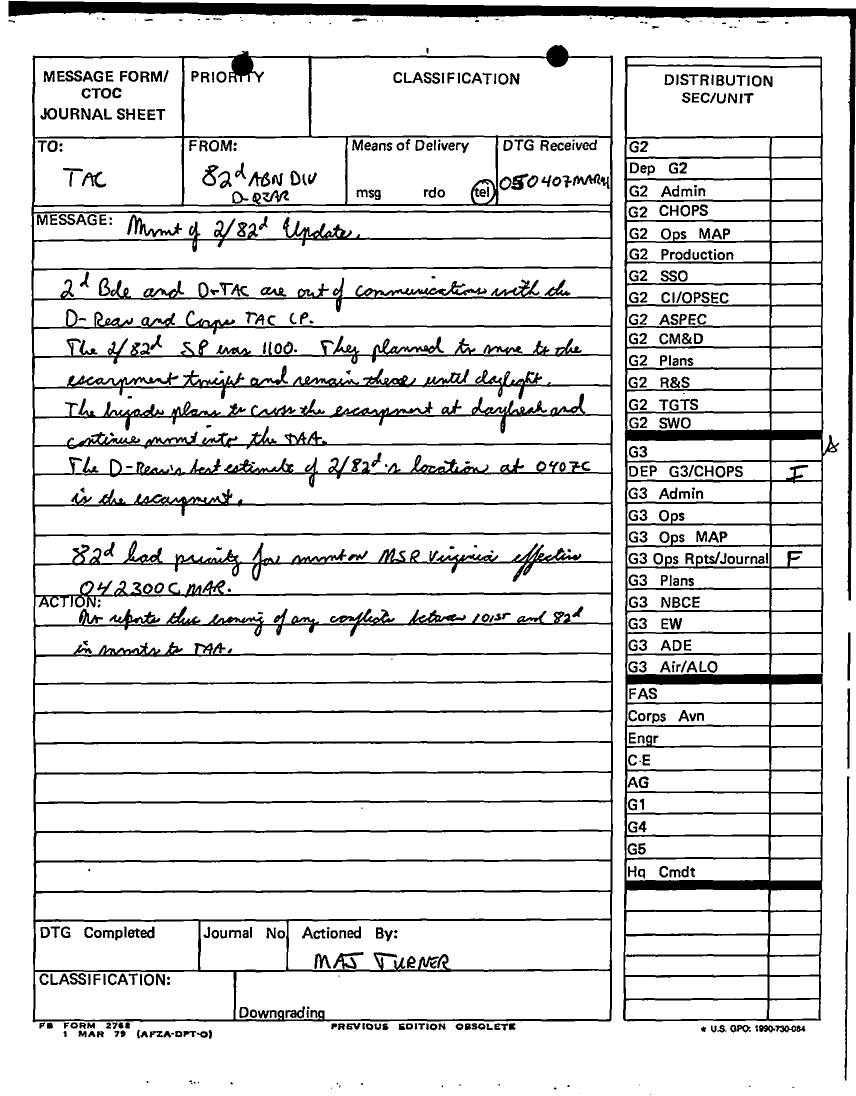 MESSAGE FORM/
CTOC
JOURNAL SHEET
PRIORITY
CLASSIFICATION
TO:
TAC
FROM:
82d ABN DIV
D-REAR
Means of Delivery
msg rdo tel
DTG Received
050407MAR91
MESSAGE: Mvmt of 2/82d Update.
2d Bde and D-TAC are out of communications with the
D-Rear and Corps TAC CP.
The 2/82d SP was 1100. They planned to move to the
escarpment tonight and remain there until daylight.
The brigade plans to cross the escarpment at daybreak and
continue mvmt into the TAA.
The D-Rear's best estimate of 2/82d's location at 0407C
is the escarpment.
82d had priority for mvmt on MSR Virginia effective
042300C MAR.
ACTION:
No reports this evening of any conflicts between 101st and 82d
in mvmts to TAA.
DTG Completed
Journal No
Actioned By:
MAJ TURNER
CLASSIFICATION:
Downgrading
FB FORM 2768
1 MAR 79 (AFZA-DPT-O)
PREVIOUS EDITION OBSOLETE
DISTRIBUTION
SEC/UNIT
G2
Dep G2
G2 Admin
G2 CHOPS
G2 Ops MAP
G2 Production
G2 SSO
G2 CI/OPSEC
G2 ASPEC
G2 CM&D
G2 Plans
G2 R&S
G2 TGTS
G2 SWO
G3
DEP G3/CHOPS I
G3 Admin
G3 Ops
G3 Ops MAP
G3 Ops Rpts/Journal F
G3 Plans
G3 NBCE
G3 EW
G3 ADE
G3 Air/ALO
FAS
Corps Avn
Engr
C-E
AG
G1
G4
G5
Hq Cmdt
* U.S. GPO: 1990-730-084